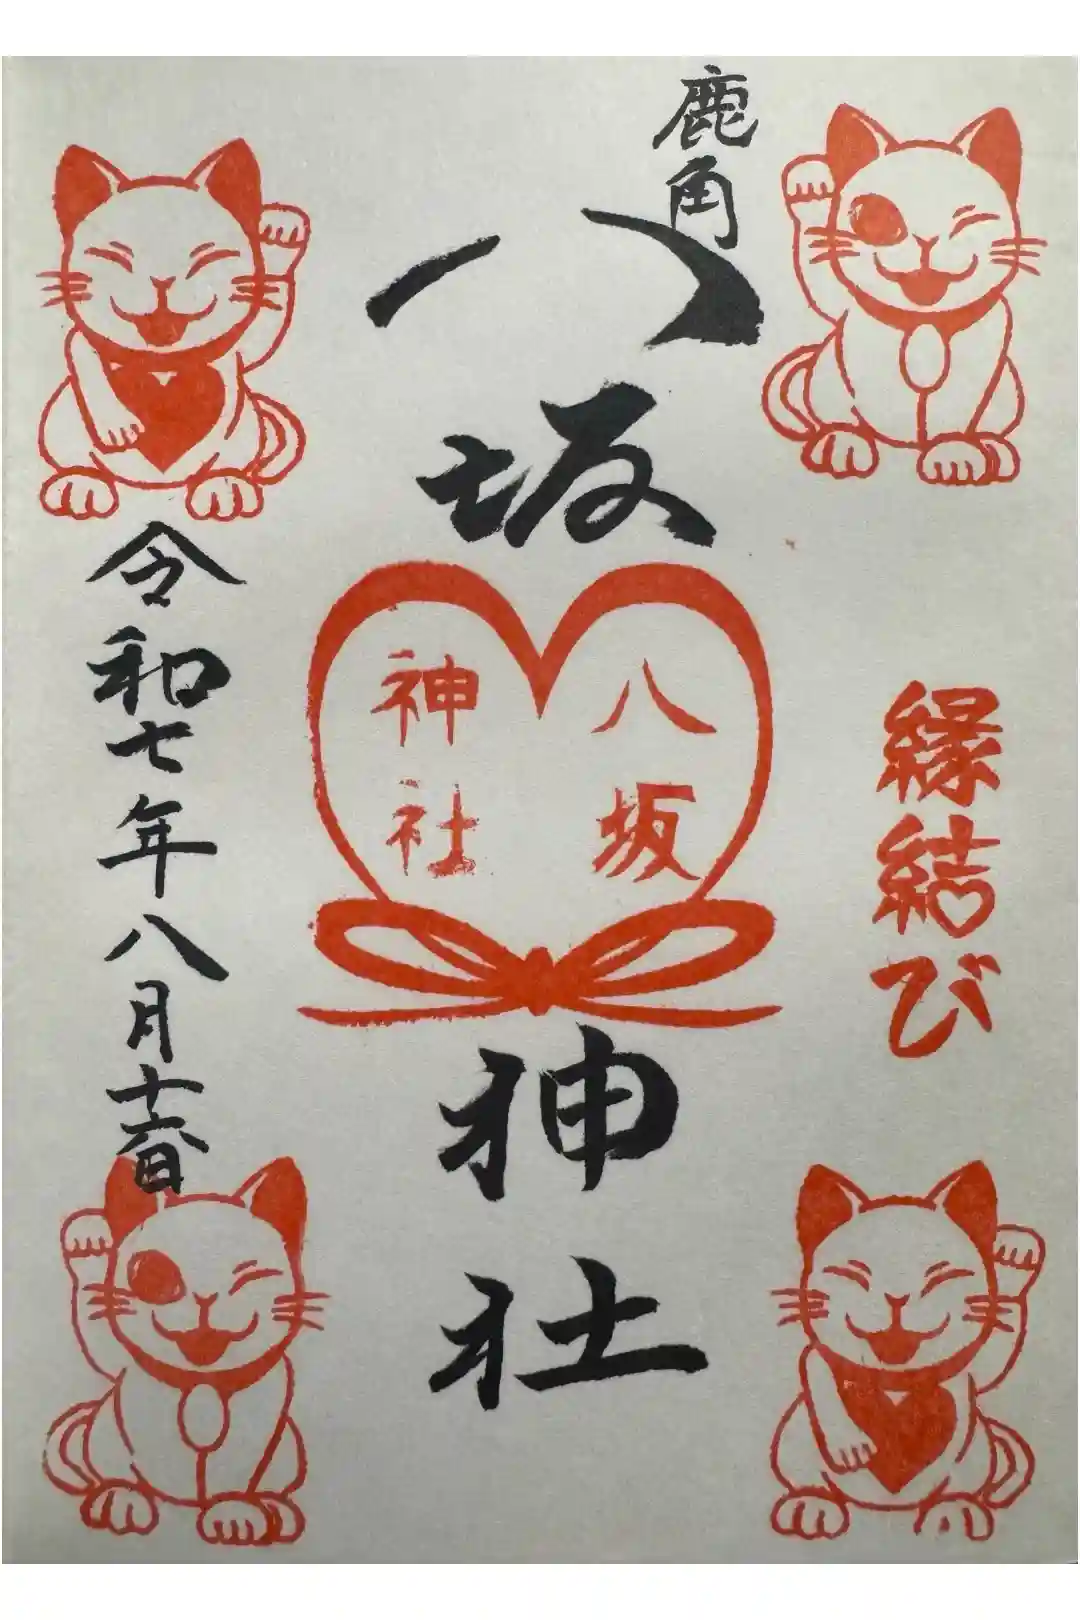 縁結び
鹿角
八坂神社
八坂
神社
令和七年八月十六日